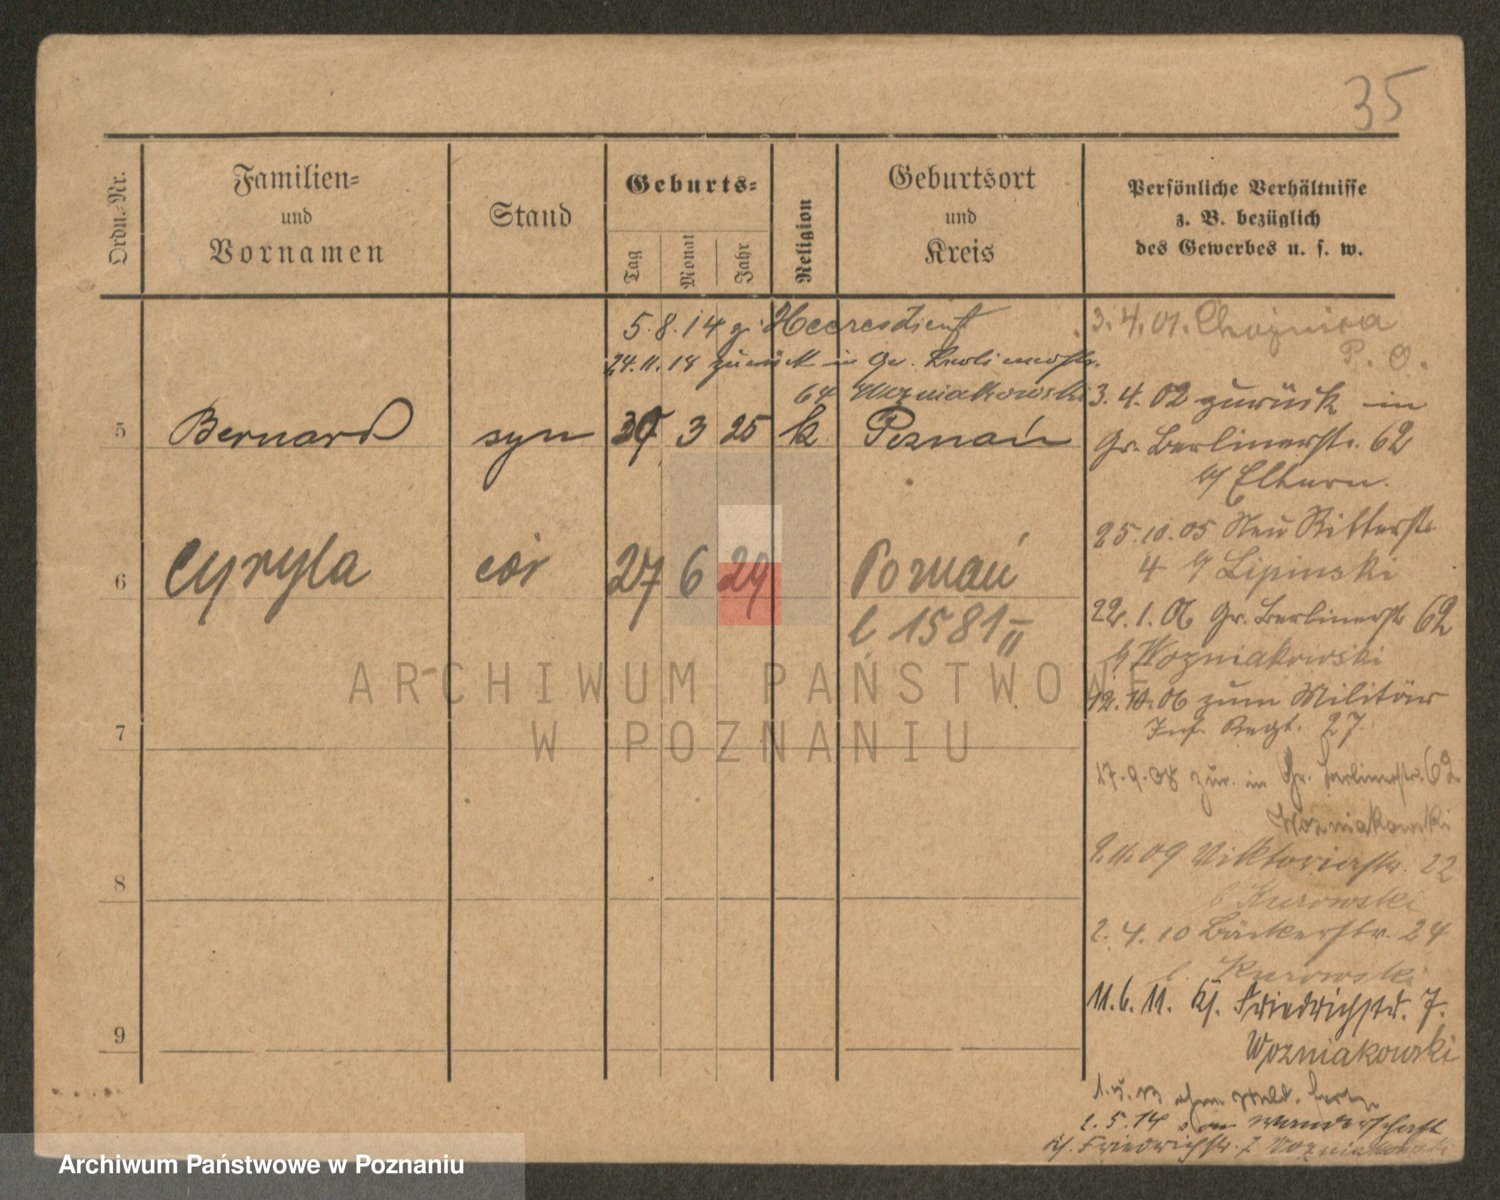 35
Ordn.-Nr.
Familien-
und
Vornamen
Stand
Geburts-
Tag
Monat
Jahr
Religion
Geburtsort
und
Kreis
Persönliche Verhältnisse
z. B. bezüglich
des Gewerbes u. s. w.
5.8.14 z. Heeresdienst
24.11.18 zurück in Gr. Berlinerstr.
64 Wozniakowski
5 Bernard syn 3 25 k Poznań
6 Cyryla cór 27 6 29 Poznań
l 1581 II
7
8
9
3.4.01. Chojnica
P. O.
3.4.02 zurück in
Gr. Berlinerstr. 62
b/ Eltern.
25.10.05 Neu Ritterstr
4 b/ Lipinski
22.1.06 Gr. Berlinerstr 62
b/ Wozniakowski
12.10.06 zum Militär
Inf. Regt. 27.
17.9.08 zur. in Gr. Berlinerstr. 62
Wozniakowski
2.11.09 Viktoriastr. 22
b Kurowski
2.4.10 Bäckerstr. 24
b. Kurowski
11.6.11. Kl. Friedrichstr. 7.
Wozniakowski
2.5.14 von Wanderschaft
Kl. Friedrichstr. 7 Wozniakowski
ARCHIWUM PAŃSTWOWE
W POZNANIU
Archiwum Państwowe w Poznaniu